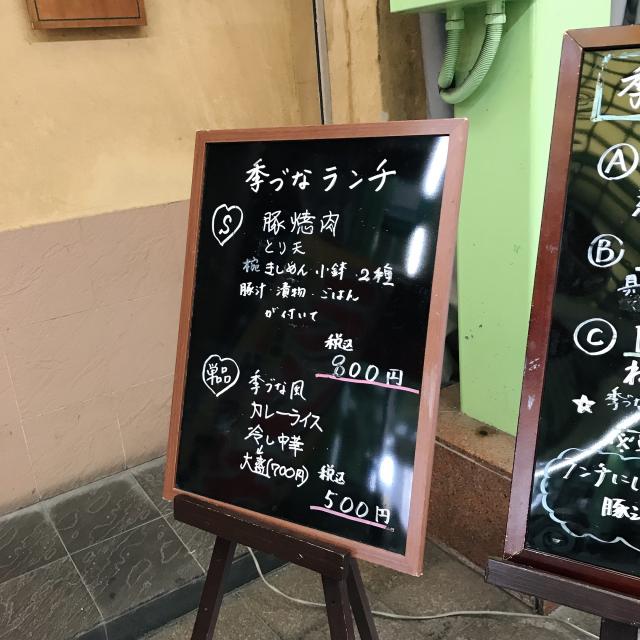 季づなランチ
S 豚焼肉
とり天
椀 きしめん 小鉢 2種
豚汁・漬物・ごはん
が付いて
税込
800円
単品 季づな風
カレーライス
冷し中華
大盛(700円) 税込
500円
季
A
B
C
季づ
ンチにし
豚シ